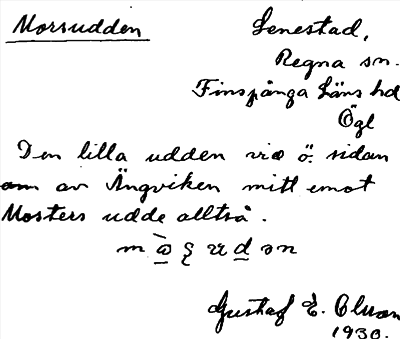 Morsudden
Senestad,
Regna sn.
Finspånga läns hd
Ögl
Den lilla udden vid ö. sidan
om av Ängviken mitt emot
Mosters udde alltså.
Gustaf E.
1930.